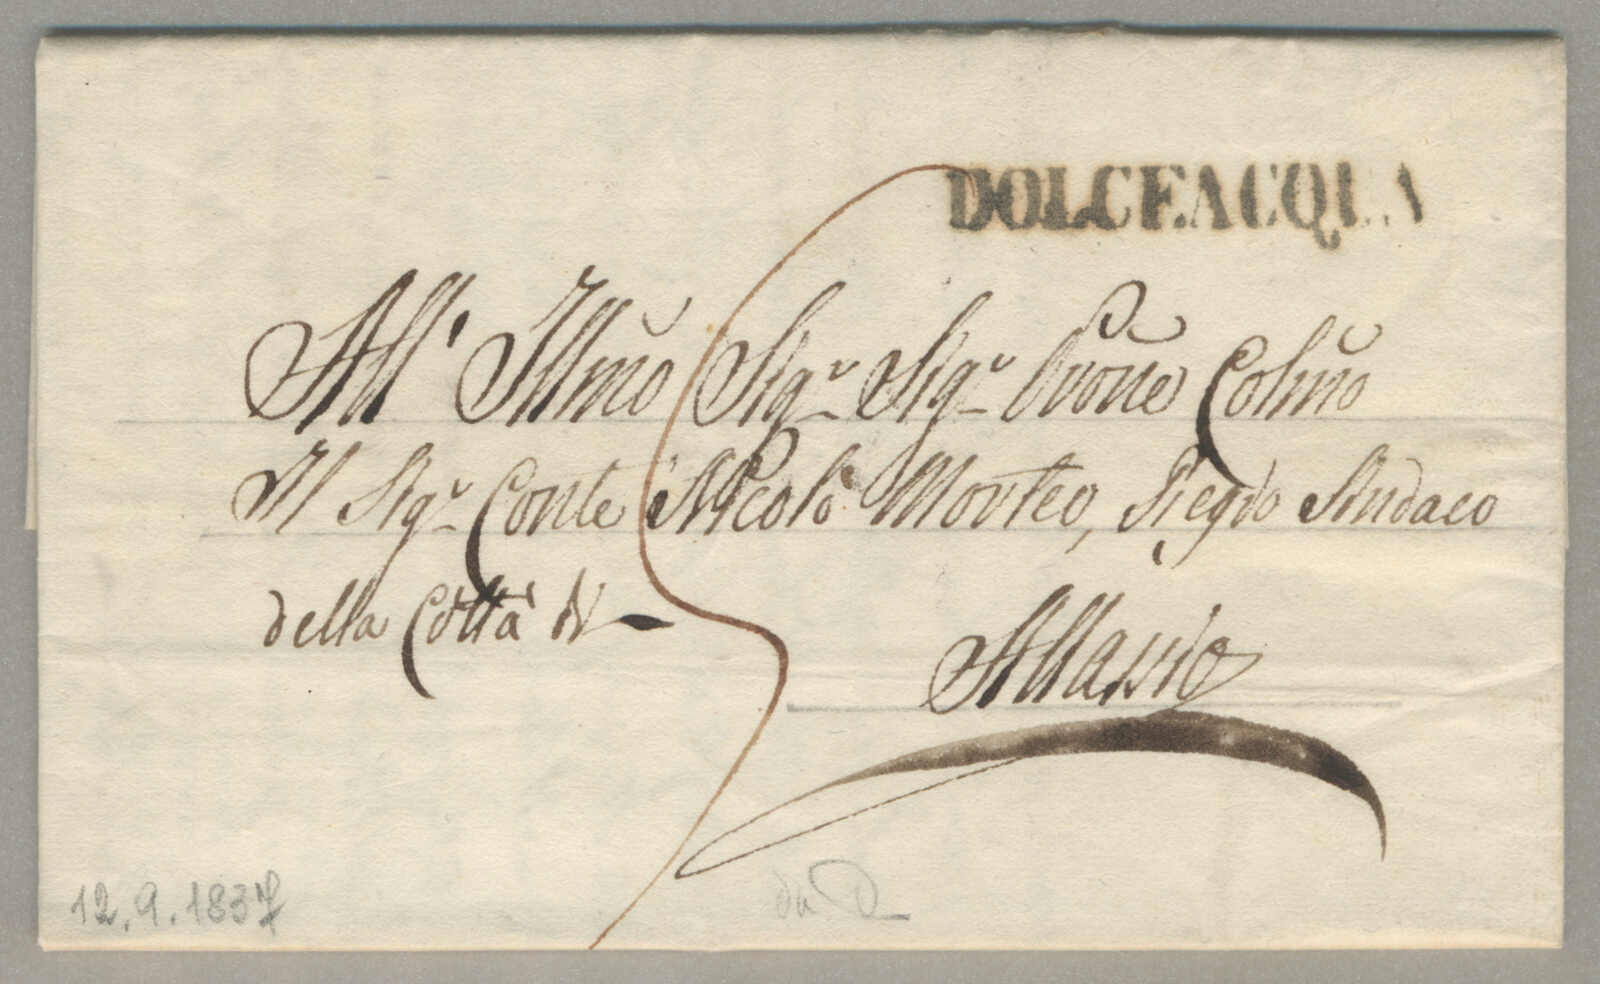 DOLCEACQUA
All' Illmo Sigr Sigr Prone Colmo
Il Sigr Conte Nicolò Morteo, Regio Sindaco
della Città di
Allassio
12.9.1837